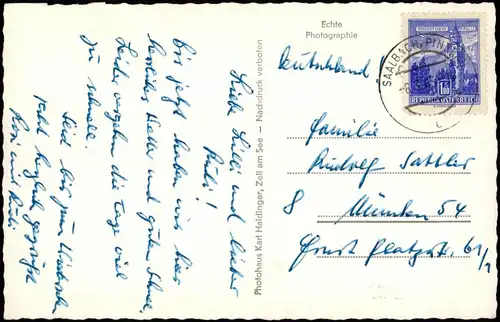 Liebe Lilli und lieber
Rudi!
Bis jetzt haben wir hier
herrliches Wetter und guten Schnee.
Leider vergehen die Tage viel
zu schnell.
Seid bis zum Wiedersehn
recht herzlich gegrüßt
und Rudi
Echte
Photographie
Photohaus Karl Haidinger, Zell am See — Nachdruck verboten
Deutschland
SAALBACH, PINZ
1.80
REPUBLIK ÖSTERREICH
Familie
Sattler
8 München 54
Ernst Platzstr. 61/1